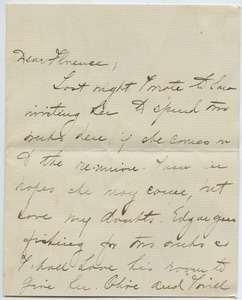 Dear Florence,
Last night I wrote to
inviting her to spend two
weeks here if she comes
to the reunion. I am in
hopes she may come, but
have my doubts. Edgar goes
fishing for two weeks so
I shall have his room to
give her. Olive and I will